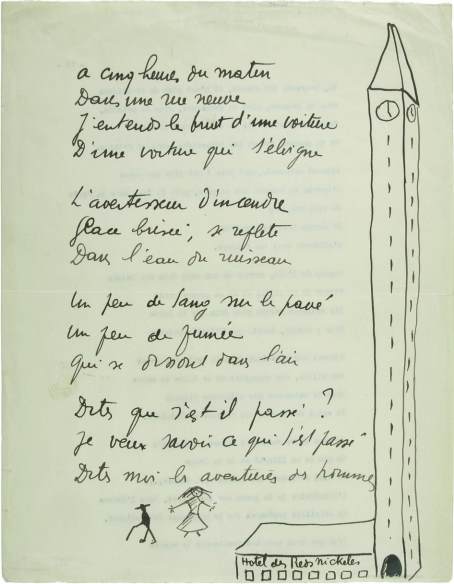 a cinq heures du matin
Dans une rue neuve
J'entends le bruit d'une voiture
D'une voiture qui s'éloigne
L'avertisseur d'incendie
Glace brisée, se reflete
Dans l'eau du ruisseau
Un peu de sang sur le pavé
Un peu de fumée
Qui se dissout dans l'air
Dites que s'est il passé ?
Je veux savoir ce qui s'est passé
Dites moi les aventures des hommes
Hotel des Pieds Nickelés